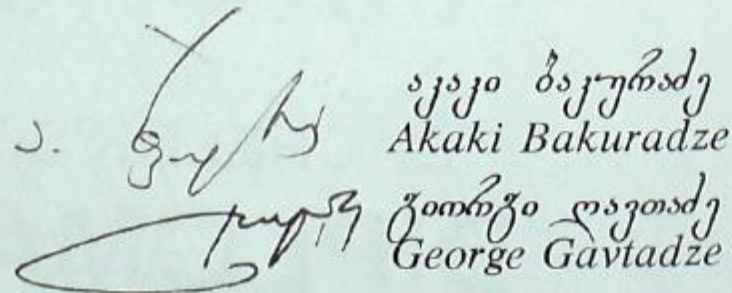 აკაკი ბაკურაძე
Akaki Bakuradze
გიორგი ღავთაძე
George Gavtadze